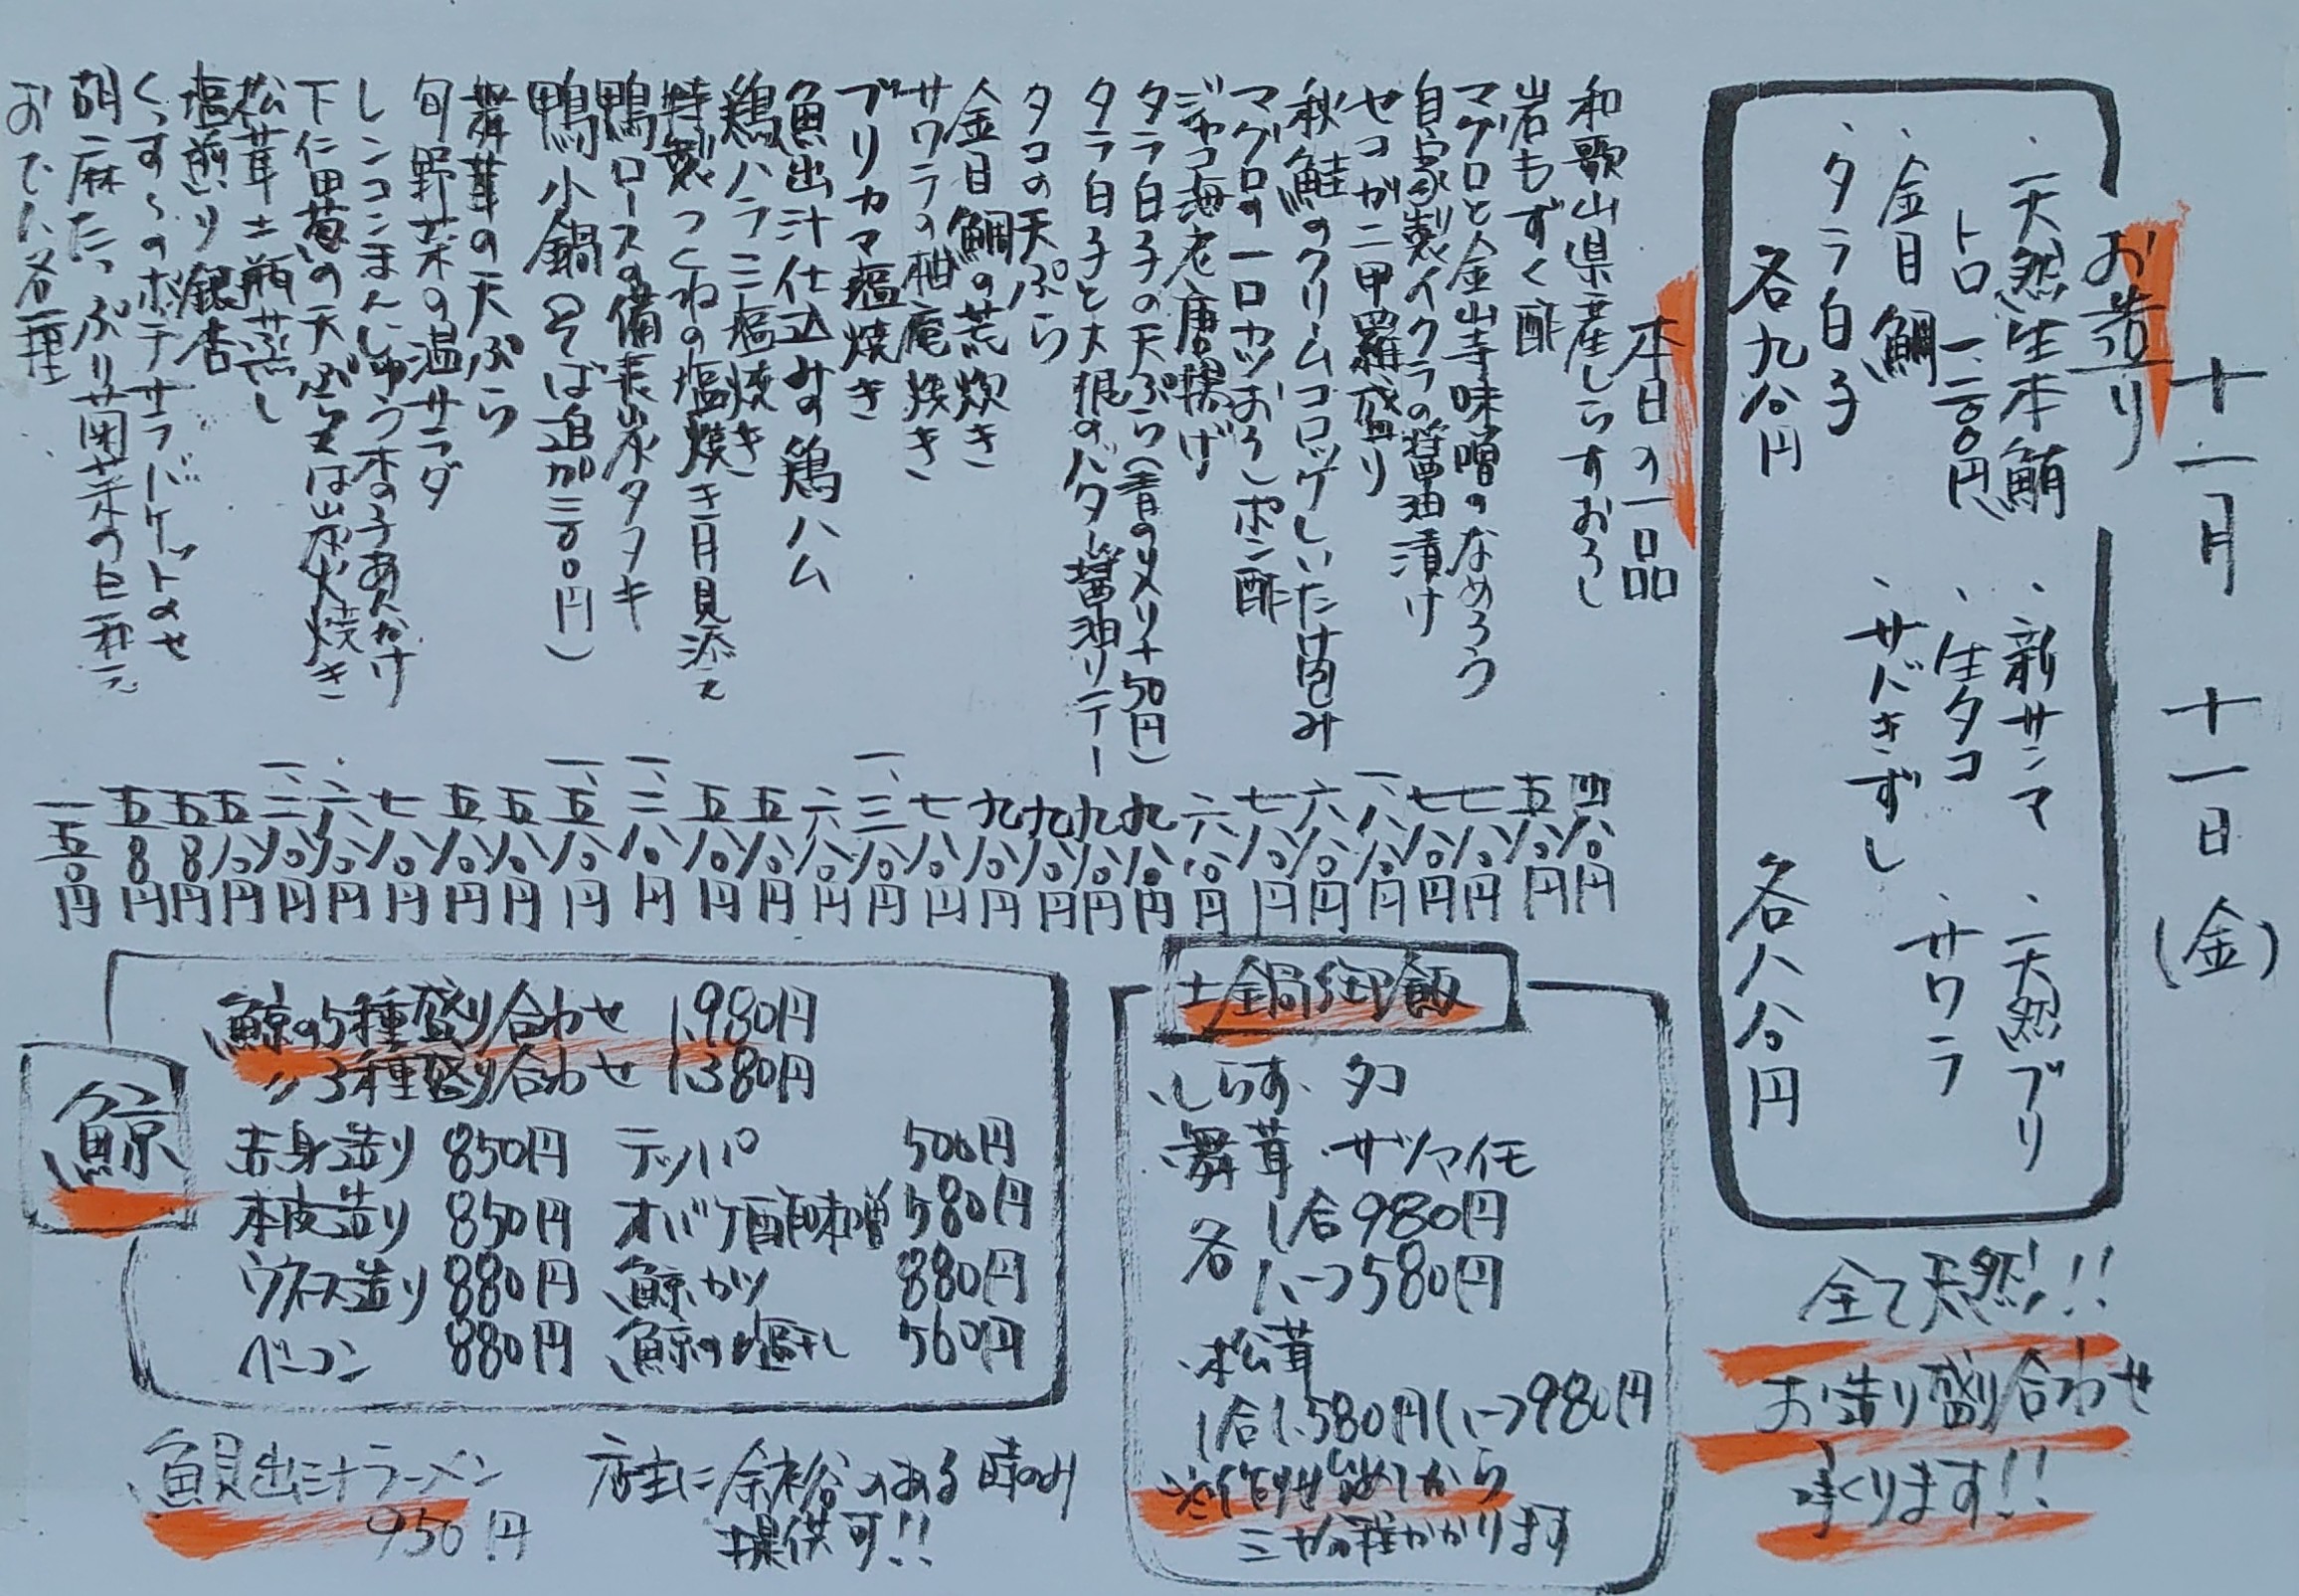 十一月 十一日 (金)
お造り
・天然生本鮪
トロ 一、二〇〇円
・金目鯛
・タラ白子
各九八〇円
・新サンマ
・生タコ
・サバきずし
・天然ブリ
・サワラ
各八八〇円
全て天然!!
お造り盛り合わせ
承ります!!
本日の一品
和歌山県産しらすおろし 四八〇円
岩もずく酢 五八〇円
マグロと金山寺味噌のなめろう 七八〇円
自家製イクラの醤油漬け 七八〇円
セコガニ甲羅盛り 一、八八〇円
秋鮭のクリームコロッケしいたけ包み 六八〇円
マグロの一口カツおろしポン酢 七八〇円
ジャコ海老唐揚げ 六八〇円
タラ白子の天ぷら(青のりメリ+50円) 九八〇円
タラ白子と大根のバター醤油ソテー 九八〇円
タコの天ぷら 九八〇円
金目鯛の荒炊き 九八〇円
サワラの柚庵焼き 七八〇円
ブリカマ塩焼き 一、三八〇円
魚出汁仕込みの鶏ハム 六八〇円
鶏ハラミ塩焼き 五八〇円
特製つくねの塩焼き月見添え 五八〇円
鴨ロースの備長炭タタキ 一、二八〇円
鴨小鍋(そば追加三〇〇円) 一、五八〇円
舞茸の天ぷら 五八〇円
旬野菜の温サラダ 五八〇円
レンコンまんじゅう木の子あんかけ 七八〇円
下仁田葱の天ぷら又は炭火焼き 六八〇円
松茸土瓶蒸し 一、二八〇円
塩煎り銀杏 五八〇円
くんすいのポテサラバケットのせ 五8円
胡麻たっぷり菊菜の白和え 五8円
おでん各種 一五〇円
土鍋御飯
・しらす・タコ
・舞茸・サツマイモ
各 1合980円
ハーフ580円
・松茸
1合1,580円(ハーフ980円
※作り始めてから
三十分程かかります
鯨
鯨の5種盛り合わせ 1,980円
〃3種盛り合わせ 1,380円
赤身造り 850円 テッパ 500円
本皮造り 850円 オバケ酢味噌 580円
ウネス造り 880円 鯨カツ 880円
ベーコン 880円 鯨の塩干し 560円
魚貝出汁ラーメン
950円
店主に余裕のある時のみ
提供可!!